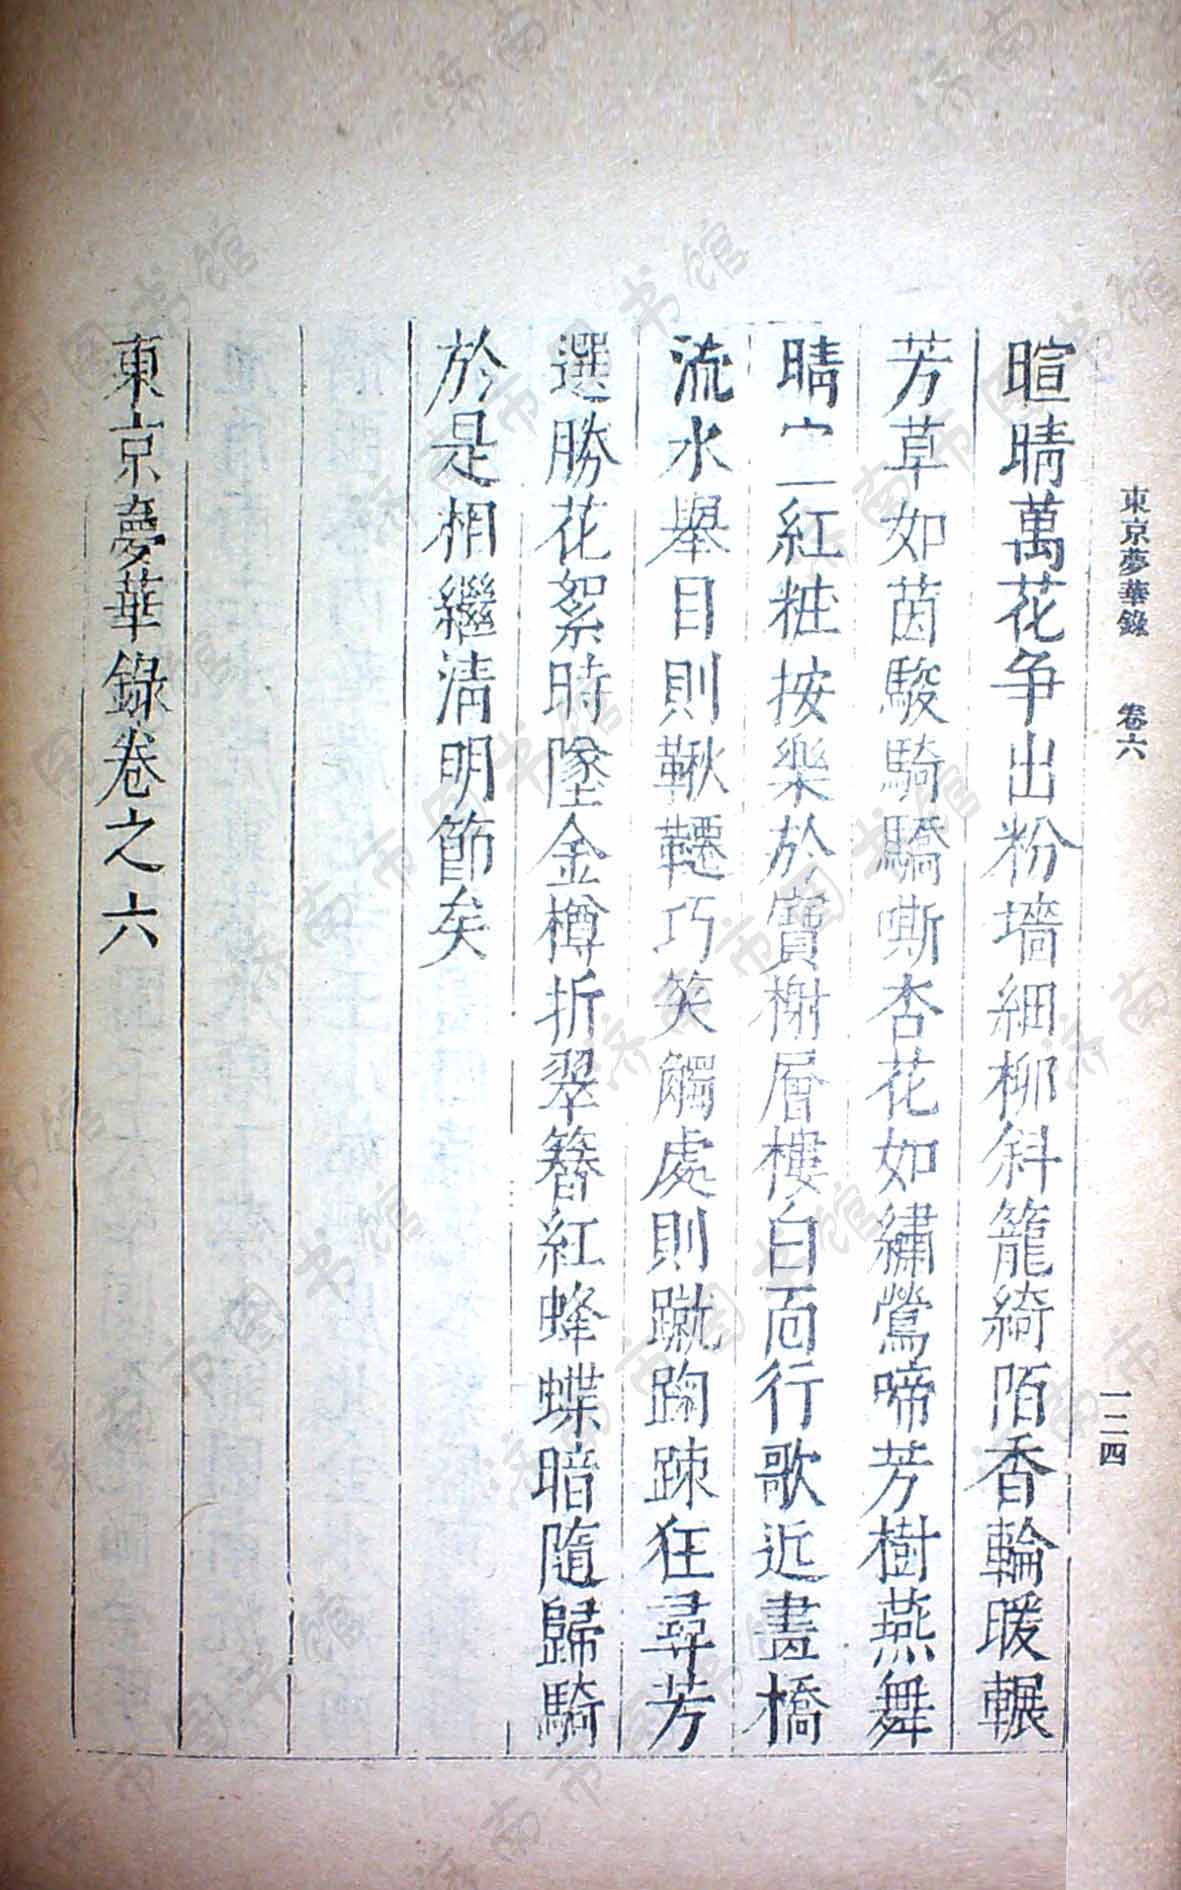 東京夢華錄 卷六
一二四
暄晴萬花争出粉墻細柳斜籠綺陌香輪暖輾
芳草如茵駿騎驕嘶杏花如繡鶯啼芳樹燕舞
晴空紅粧按樂於寳榭層樓白面行歌近畫橋
流水舉目則鞦韆巧笑觸處則蹴踘踈狂尋芳
選勝花絮時墜金樽折翠簪紅蜂蝶暗隨歸騎
於是相繼清明節矣
東京夢華錄卷之六
济南市图书馆